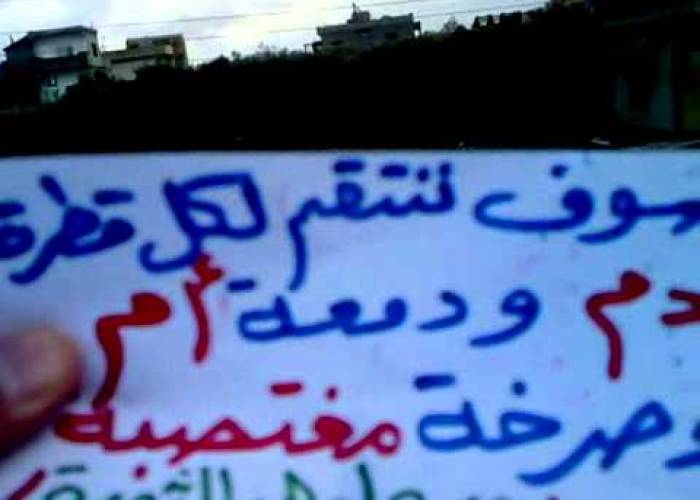 سوف ننتقم لكل قطرة
دم ودمعة أم
وصرخة مغتصبة
الثورة